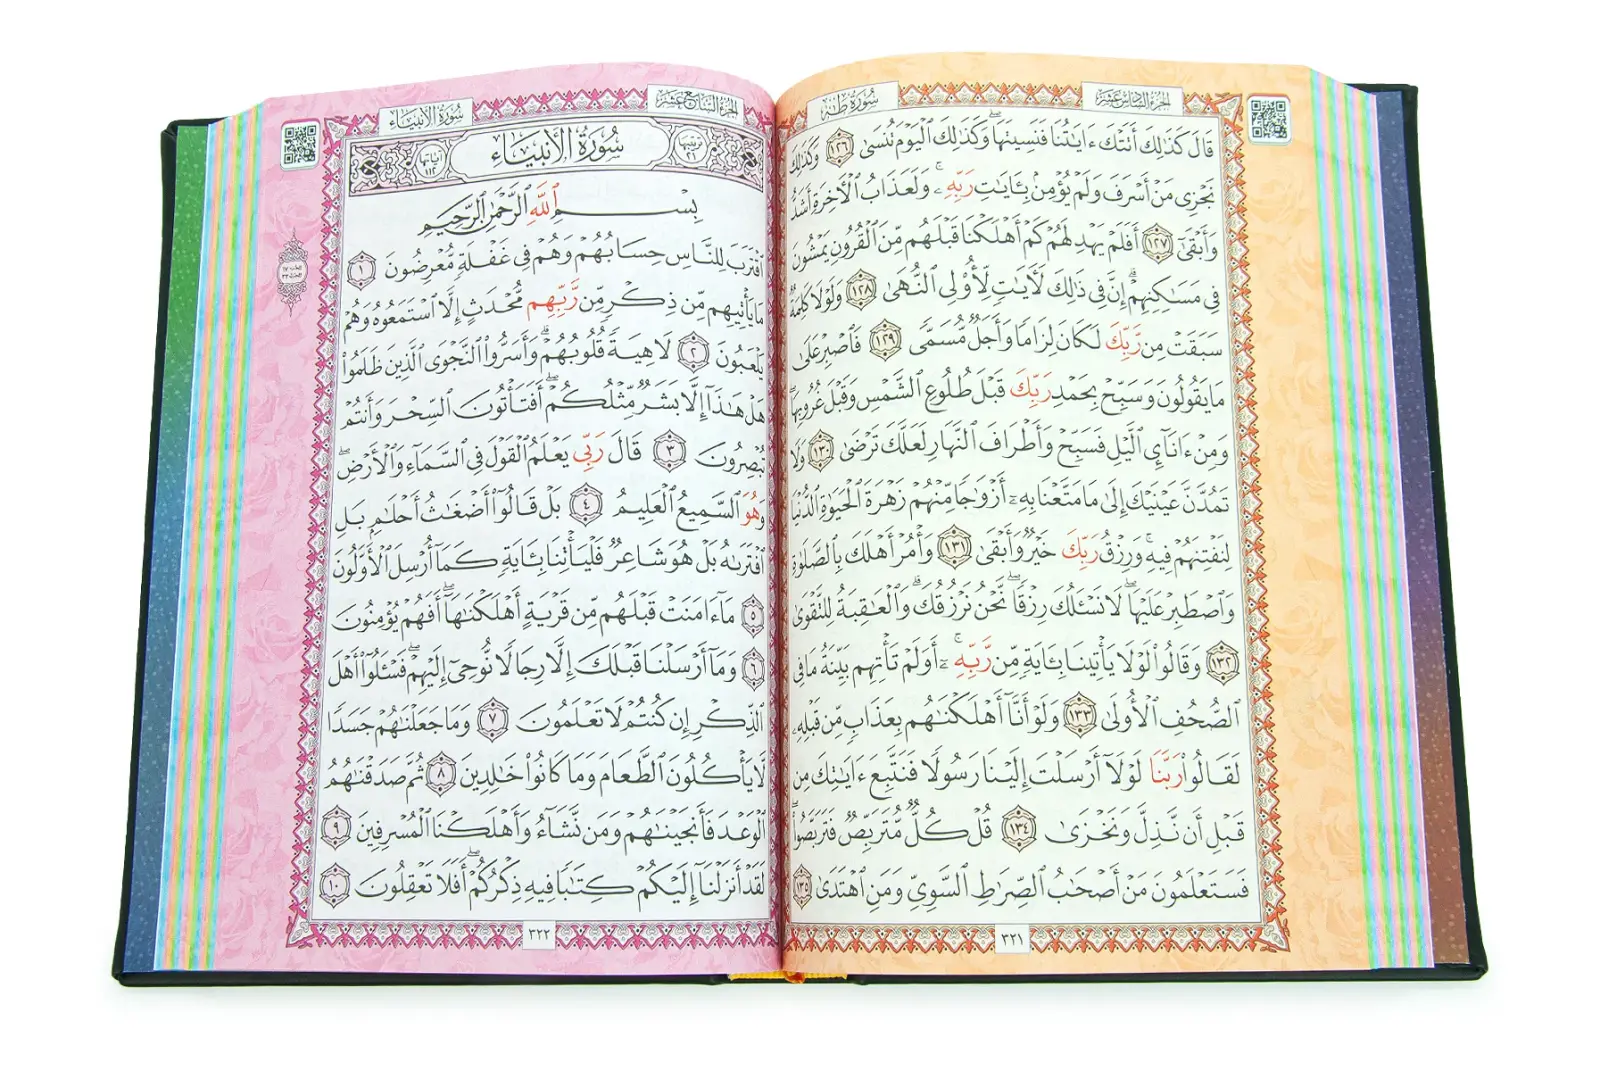 سُورَةُ طه
الجُزءُ السَّادِسَ عَشَرَ
قَالَ كَذَٰلِكَ أَتَتْكَ ءَايَٰتُنَا فَنَسِيتَهَا ۖ وَكَذَٰلِكَ ٱلْيَوْمَ تُنسَىٰ ١٢٦ وَكَذَٰلِكَ
نَجْزِى مَنْ أَسْرَفَ وَلَمْ يُؤْمِنۢ بِـَٔايَٰتِ رَبِّهِۦ ۚ وَلَعَذَابُ ٱلْـَٔاخِرَةِ أَشَدُّ
وَأَبْقَىٰٓ ١٢٧ أَفَلَمْ يَهْدِ لَهُمْ كَمْ أَهْلَكْنَا قَبْلَهُم مِّنَ ٱلْقُرُونِ يَمْشُونَ
فِى مَسَٰكِنِهِمْ ۗ إِنَّ فِى ذَٰلِكَ لَـَٔايَٰتٍ لِّأُو۟لِى ٱلنُّهَىٰ ١٢٨ وَلَوْلَا كَلِمَةٌ
سَبَقَتْ مِن رَّبِّكَ لَكَانَ لِزَامًا وَأَجَلٌ مُّسَمًّى ١٢٩ فَٱصْبِرْ عَلَىٰ
مَا يَقُولُونَ وَسَبِّحْ بِحَمْدِ رَبِّكَ قَبْلَ طُلُوعِ ٱلشَّمْسِ وَقَبْلَ غُرُوبِهَا ۖ
وَمِنْ ءَانَآئِ ٱلَّيْلِ فَسَبِّحْ وَأَطْرَافَ ٱلنَّهَارِ لَعَلَّكَ تَرْضَىٰ ١٣٠ وَلَا
تَمُدَّنَّ عَيْنَيْكَ إِلَىٰ مَا مَتَّعْنَا بِهِۦٓ أَزْوَٰجًا مِّنْهُمْ زَهْرَةَ ٱلْحَيَوٰةِ ٱلدُّنْيَا
لِنَفْتِنَهُمْ فِيهِ ۚ وَرِزْقُ رَبِّكَ خَيْرٌ وَأَبْقَىٰ ١٣١ وَأْمُرْ أَهْلَكَ بِٱلصَّلَوٰةِ
وَٱصْطَبِرْ عَلَيْهَا ۖ لَا نَسْـَٔلُكَ رِزْقًا ۖ نَّحْنُ نَرْزُقُكَ ۗ وَٱلْعَٰقِبَةُ لِلتَّقْوَىٰ
١٣٢ وَقَالُوا۟ لَوْلَا يَأْتِينَا بِـَٔايَةٍ مِّن رَّبِّهِۦٓ ۚ أَوَلَمْ تَأْتِهِم بَيِّنَةُ مَا فِى
ٱلصُّحُفِ ٱلْأُولَىٰ ١٣٣ وَلَوْ أَنَّآ أَهْلَكْنَٰهُم بِعَذَابٍ مِّن قَبْلِهِۦ
لَقَالُوا۟ رَبَّنَا لَوْلَآ أَرْسَلْتَ إِلَيْنَا رَسُولًا فَنَتَّبِعَ ءَايَٰتِكَ مِن
قَبْلِ أَن نَّذِلَّ وَنَخْزَىٰ ١٣٤ قُلْ كُلٌّ مُّتَرَبِّصٌ فَتَرَبَّصُوا۟ ۖ
فَسَتَعْلَمُونَ مَنْ أَصْحَٰبُ ٱلصِّرَٰطِ ٱلسَّوِىِّ وَمَنِ ٱهْتَدَىٰ ١٣٥
٣٢١
سُورَةُ الأَنبِيَاءِ
الجُزءُ السَّابِعَ عَشَرَ
ترتيبها ٢١
سُورَةُ الأَنبِيَاءِ
آياتها ١١٢
بِسْمِ ٱللَّهِ ٱلرَّحْمَٰنِ ٱلرَّحِيمِ
ٱقْتَرَبَ لِلنَّاسِ حِسَابُهُمْ وَهُمْ فِى غَفْلَةٍ مُّعْرِضُونَ ١
مَا يَأْتِيهِم مِّن ذِكْرٍ مِّن رَّبِّهِم مُّحْدَثٍ إِلَّا ٱسْتَمَعُوهُ وَهُمْ
يَلْعَبُونَ ٢ لَاهِيَةً قُلُوبُهُمْ ۗ وَأَسَرُّوا۟ ٱلنَّجْوَى ٱلَّذِينَ ظَلَمُوا۟
هَلْ هَٰذَآ إِلَّا بَشَرٌ مِّثْلُكُمْ ۖ أَفَتَأْتُونَ ٱلسِّحْرَ وَأَنتُمْ
تُبْصِرُونَ ٣ قَالَ رَبِّى يَعْلَمُ ٱلْقَوْلَ فِى ٱلسَّمَآءِ وَٱلْأَرْضِ ۖ
وَهُوَ ٱلسَّمِيعُ ٱلْعَلِيمُ ٤ بَلْ قَالُوٓا۟ أَضْغَٰثُ أَحْلَٰمٍۭ بَلِ
ٱفْتَرَىٰهُ بَلْ هُوَ شَاعِرٌ فَلْيَأْتِنَا بِـَٔايَةٍ كَمَآ أُرْسِلَ ٱلْأَوَّلُونَ
٥ مَآ ءَامَنَتْ قَبْلَهُم مِّن قَرْيَةٍ أَهْلَكْنَٰهَآ ۖ أَفَهُمْ يُؤْمِنُونَ
٦ وَمَآ أَرْسَلْنَا قَبْلَكَ إِلَّا رِجَالًا نُّوحِىٓ إِلَيْهِمْ ۖ فَسْـَٔلُوٓا۟ أَهْلَ
ٱلذِّكْرِ إِن كُنتُمْ لَا تَعْلَمُونَ ٧ وَمَا جَعَلْنَٰهُمْ جَسَدًا
لَّا يَأْكُلُونَ ٱلطَّعَامَ وَمَا كَانُوا۟ خَٰلِدِينَ ٨ ثُمَّ صَدَقْنَٰهُمُ
ٱلْوَعْدَ فَأَنجَيْنَٰهُمْ وَمَن نَّشَآءُ وَأَهْلَكْنَا ٱلْمُسْرِفِينَ ٩
لَقَدْ أَنزَلْنَآ إِلَيْكُمْ كِتَٰبًا فِيهِ ذِكْرُكُمْ ۖ أَفَلَا تَعْقِلُونَ ١٠
٣٢٢